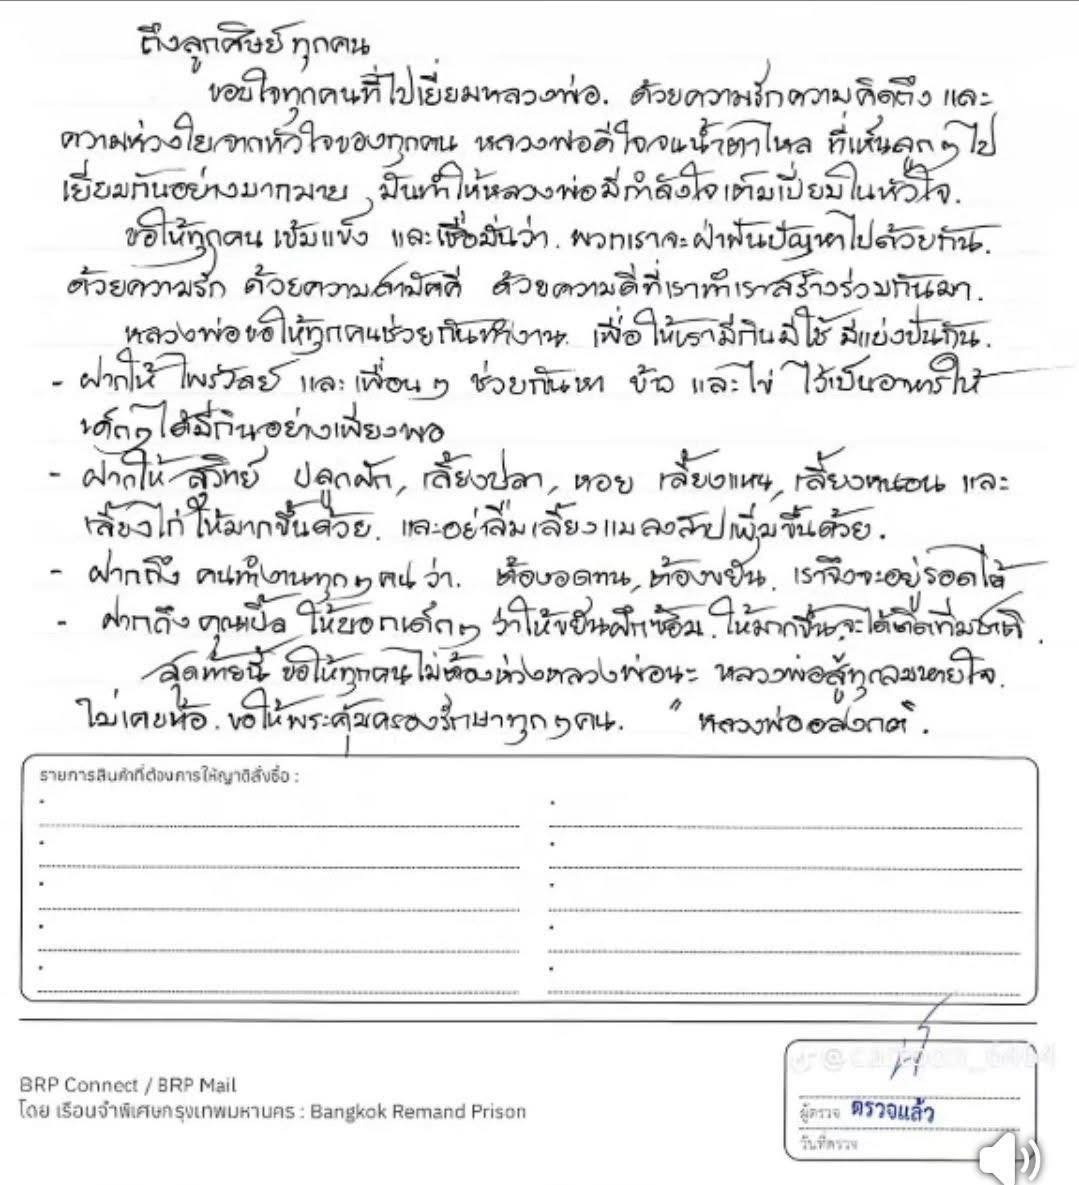 ถึงลูกศิษย์ทุกคน
ขอบใจทุกคนที่ไปเยี่ยมหลวงพ่อ. ด้วยความรักความคิดถึง และ
ความห่วงใยจากหัวใจของทุกคน หลวงพ่อดีใจจนน้ำตาไหล ที่เห็นลูกๆ ไป
เยี่ยมกันอย่างมากมาย, มันทำให้หลวงพ่อมีกำลังใจเต็มเปี่ยมในหัวใจ.
ขอให้ทุกคน เข้มแข็ง และเชื่อมั่นว่า. พวกเราจะฝ่าฟันปัญหาไปด้วยกัน.
ด้วยความรัก ด้วยความสามัคคี ด้วยความดีที่เราทำเราสร้างร่วมกันมา.
หลวงพ่อขอให้ทุกคนช่วยกันทำงาน. เพื่อให้เรามีกินมีใช้ มีแบ่งปันกัน.
- ฝากให้ ไพรวัลย์ และ เพื่อนๆ ช่วยกันหา ข้าว และไข่ ไว้เป็นอาหารให้
เด็กๆ ได้มีกินอย่างเพียงพอ
- ฝากให้ สุวิทย์ ปลูกผัก, เลี้ยงปลา, หอย เลี้ยงแหน, เลี้ยงหนอน และ
เลี้ยงไก่ ให้มากขึ้นด้วย. และอย่าลืมเลี้ยงแมลงสาปเพิ่มขึ้นด้วย.
- ฝากถึง คนทำงานทุกๆ คน ว่า. ต้องอดทน, ต้องขยัน. เราจึงจะอยู่รอดได้
- ฝากถึง คุณเปิ้ล ให้บอกเด็กๆ ว่าให้ขยันฝึกซ้อม. ให้มากขึ้น จะได้ติดทีมชาติ.
สุดท้ายนี้ ขอให้ทุกคนไม่ต้องห่วงหลวงพ่อนะ หลวงพ่อสู้ทุกลมหายใจ.
ไม่เคยท้อ. ขอให้พระคุ้มครองรักษาทุกๆ คน. "หลวงพ่ออลงกต".
รายการสินค้าที่ต้องการให้ญาติสั่งซื้อ :
BRP Connect / BRP Mail
โดย เรือนจำพิเศษกรุงเทพมหานคร : Bangkok Remand Prison
ผู้ตรวจ ตรวจแล้ว
วันที่ตรวจ